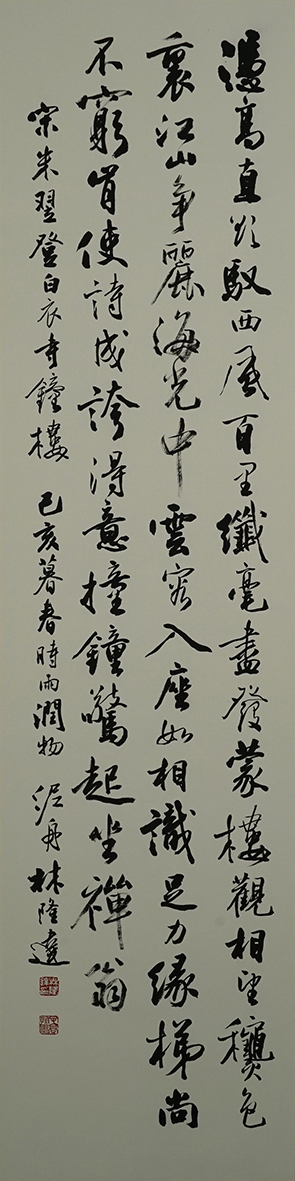 憑高直欲馭西風百里纖毫盡發蒙樓觀相望穠色
裏江山爭麗海光中雲容入座如相識足力緣梯尚
不窮肯使詩成誇得意撞鐘驚起坐禪翁
宋朱翌登白衣寺鐘樓 己亥暮春時雨潤物 泥舟 林隆達